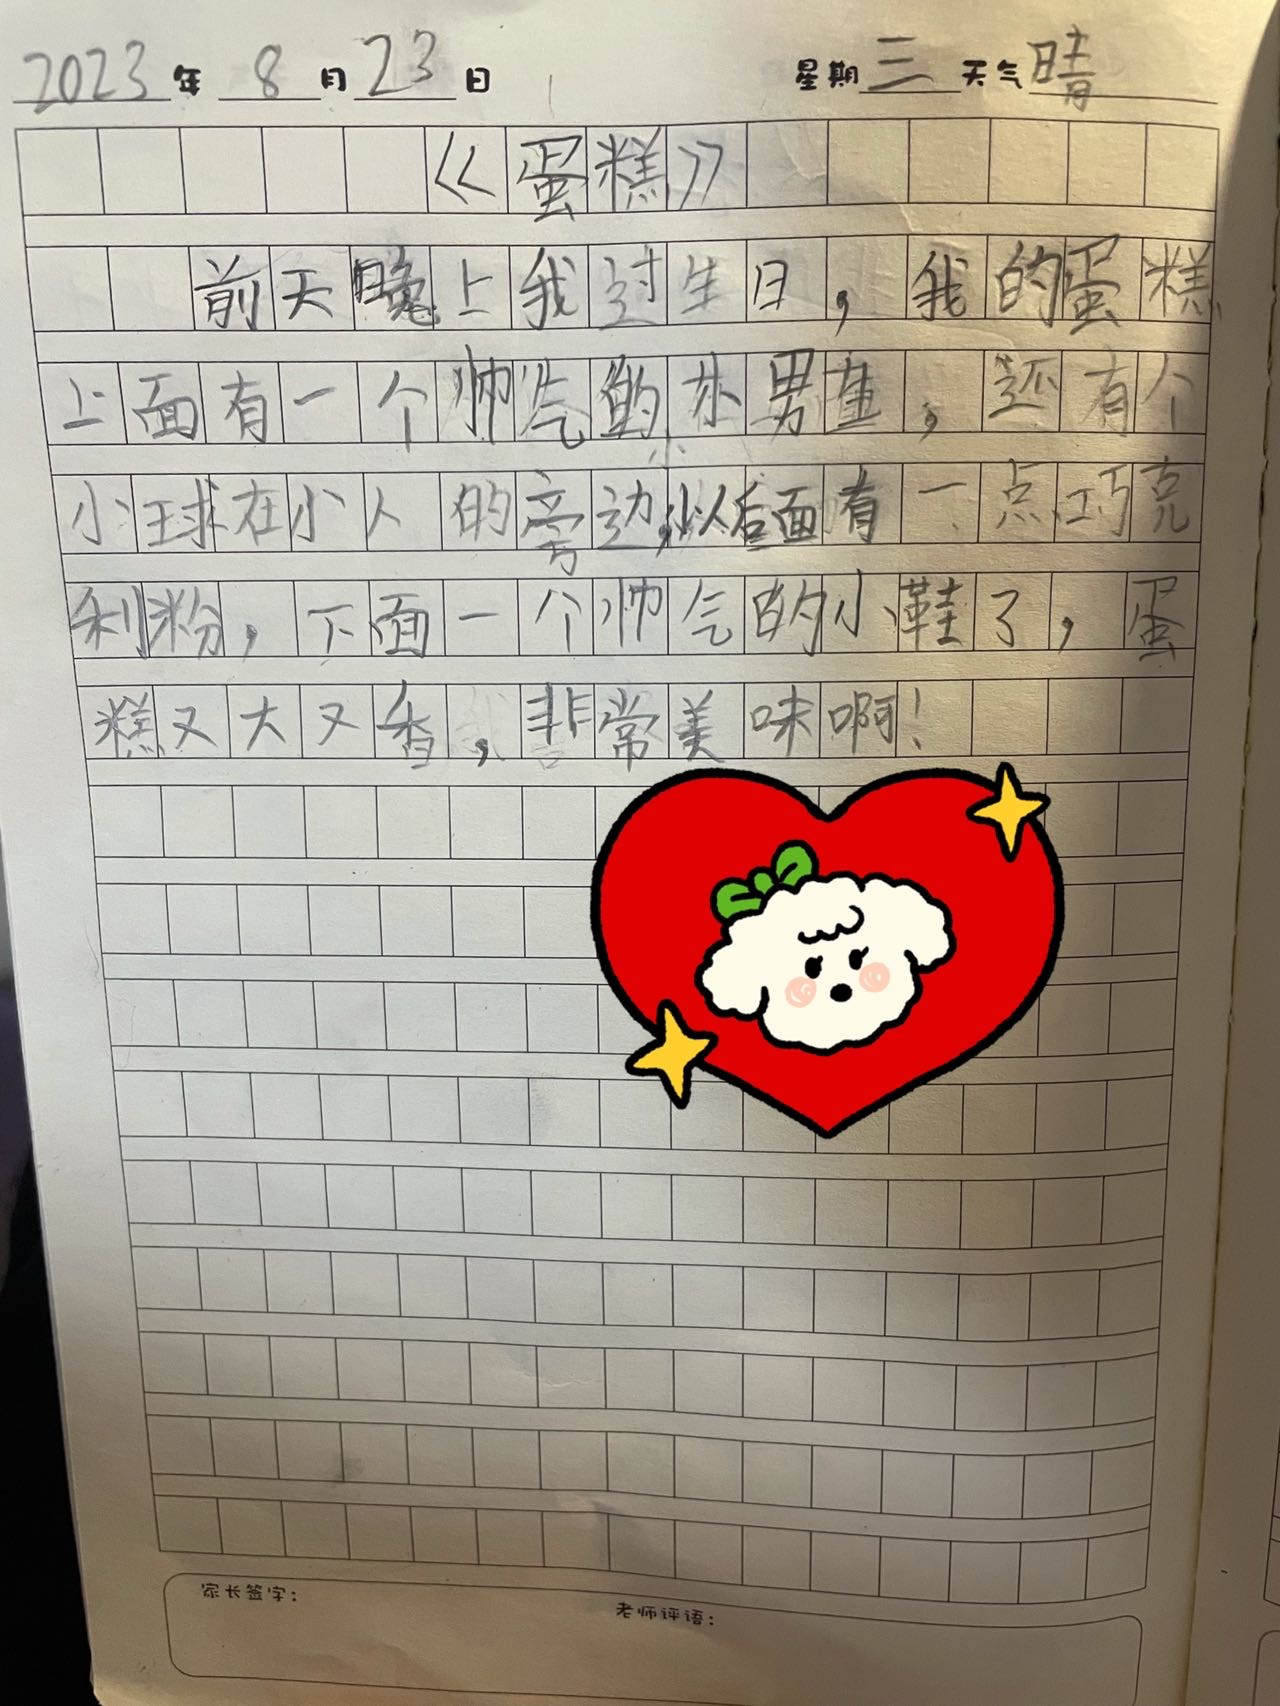 2023年 8月23日 星期三 天气晴
《蛋糕》
前天晚上我过生日，我的蛋糕
上面有一个帅气的小男童，还有个
小球在小人的旁边，以后面有一点巧克
利粉，下面一个帅气的小鞋了，蛋
糕又大又香，非常美味啊！
家长签字：
老师评语：